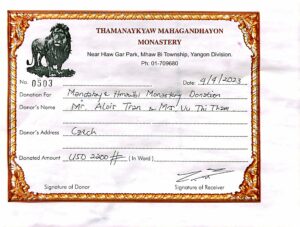 THAMANAYKYAW MAHAGANDHAYON
MONASTERY
Near Hlaw Gar Park, Mhaw Bi Township, Yangon Division.
Ph: 01-709680
No. 0503
Date: 9/9/2023
Donation For Monastery Donation
Donor's Name Mr. Alois Tran & Mrs. Vu Thi Tham
Donor's Address Czech
Donated Amount USD 2200 # (In Word)
Signature of Donor
Signature of Receiver